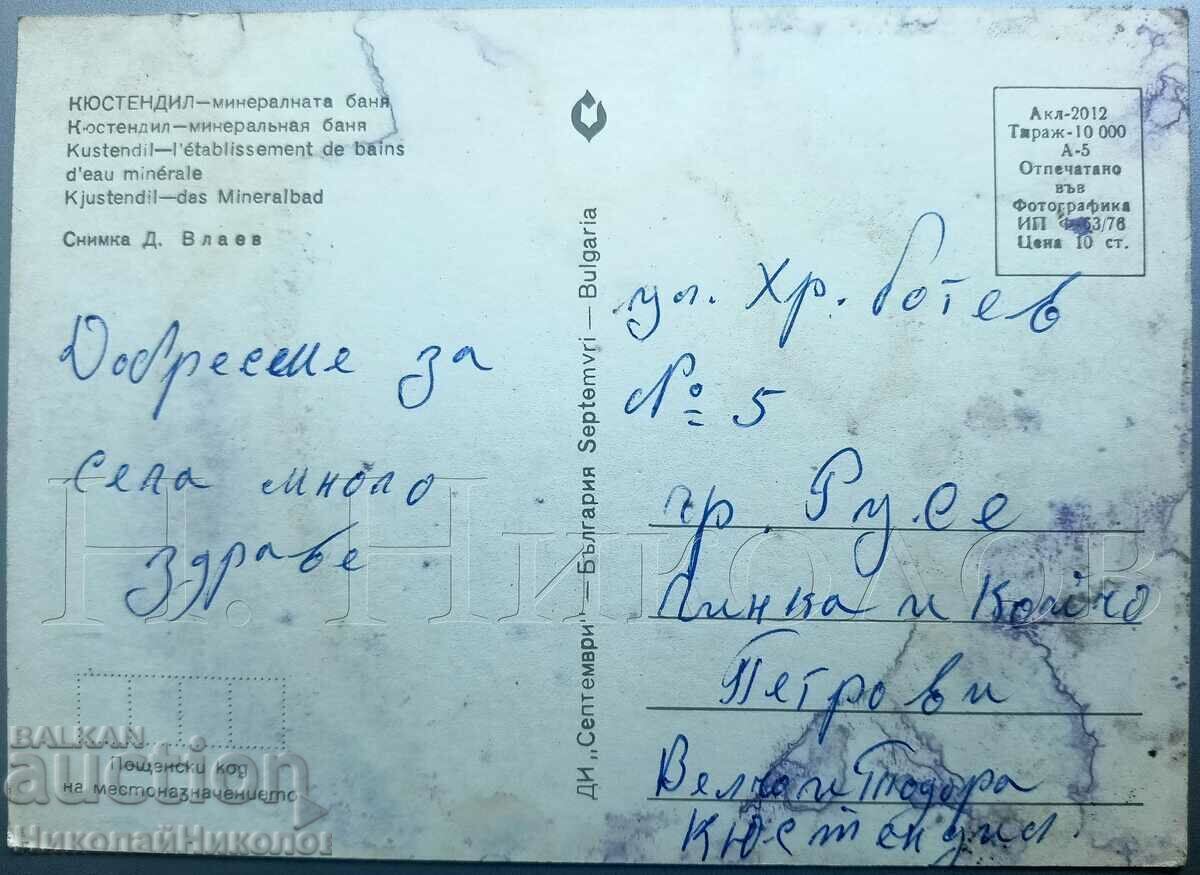 КЮСТЕНДИЛ—минералната баня
Кюстендил—минеральная баня
Kustendil—l'établissement de bains
d'eau minérale
Kjustendil—das Mineralbad
Снимка Д. Влаев
Добре сме за
сега много
здраве
Пощенски код
на местоназначението
ДИ „Септември" — България Septemvri — Bulgaria
Акл-2012
Тираж-10 000
А-5
Отпечатано
във
Фотографика
ИП Ф-63/76
Цена 10 ст.
ул. Хр. Ботев
№ 5
гр. Русе
Пинка и Койчо
Петрови
Велчо и Тодора
Кюстендил
Н. Николов
BALKAN
auction
НиколайНиколов